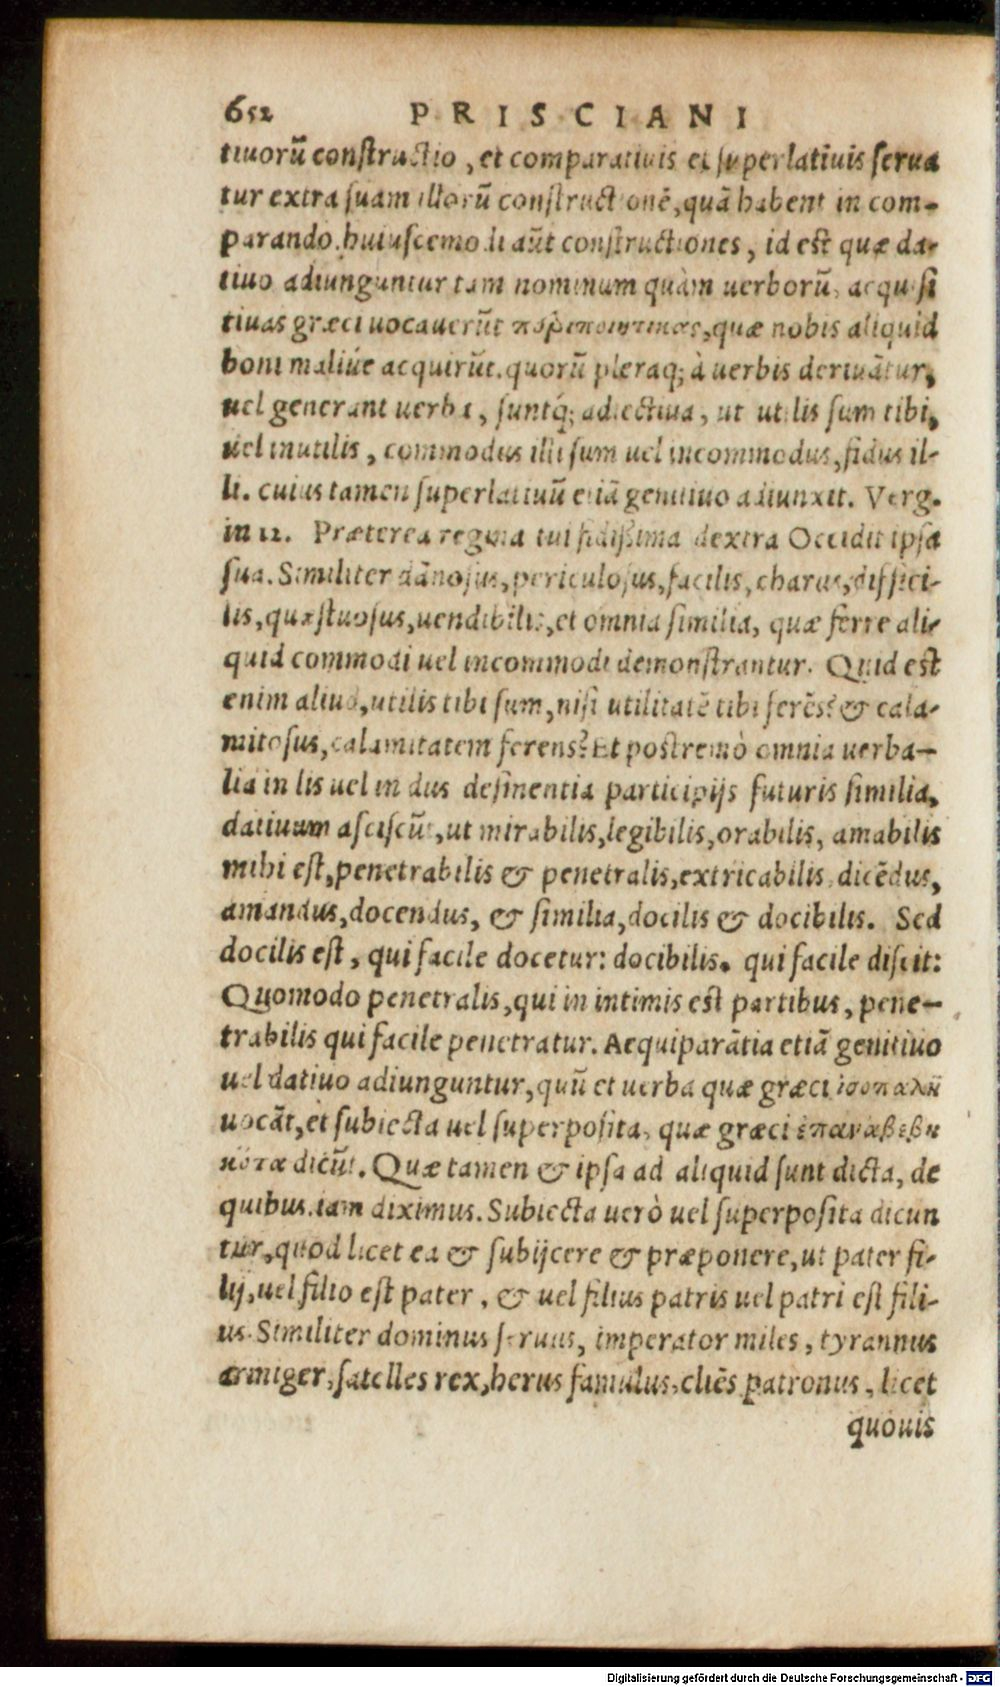 652 PRISCIANI
tiuorũ constructio, et comparatiuis et superlatiuis serua
tur extra suam illorũ constructionẽ, quã habent in com-
parando. huiuscemodi aũt constructiones, id est quæ da-
tiuo adiunguntur tam nominum quàm uerborũ, acquisi
tiuas græci uocauerũt περιποιητικας, quæ nobis aliquid
boni maliúe acquirũt. quorũ pleraq; à uerbis deriuãtur,
uel generant uerba, suntq́; adiectiua, ut utilis sum tibi,
uel inutilis, commodus illi sum uel incommodus, fidus il-
li. cuius tamen superlatiuũ etiã genitiuo adiunxit. Verg.
in 12. Præterea regina tui fidissima dextra Occidit ipsa
sua. Similiter dãnosus, periculosus, facilis, charus, diffici-
lis, quæstuosus, uendibilis, et omnia similia, quæ ferre ali-
quid commodi uel incommodi demonstrantur. Quid est
enim aliud, utilis tibi sum, nisi utilitatẽ tibi ferẽs? & cala-
mitosus, calamitatem ferens? Et postremò omnia uerba-
lia in lis uel in dus desinentia participijs futuris similia,
datiuum asciscũt, ut mirabilis, legibilis, orabilis, amabilis
mihi est, penetrabilis & penetralis, extricabilis, dicẽdus,
amandus, docendus, & similia, docilis & docibilis. Sed
docilis est, qui facile docetur: docibilis. qui facile discit:
Quomodo penetralis, qui in intimis est partibus, pene-
trabilis qui facile penetratur. Aequiparãtia etiã genitiuo
uel datiuo adiunguntur, quũ et uerba quæ græci ἰσοπαλῆ
uocãt, et subiecta uel superposita, quæ græci ἐπαναβεβη
κότα dicũt. Quæ tamen & ipsa ad aliquid sunt dicta, de
quibus iam diximus. Subiecta uerò uel superposita dicun
tur, quod licet ea & subijcere & præponere, ut pater fi-
lij, uel filio est pater, & uel filius patris uel patri est fili-
us. Similiter dominus seruus, imperator miles, tyrannus
armiger, satelles rex, herus famulus, cliẽs patronus, licet
quouis
Digitalisierung gefördert durch die Deutsche Forschungsgemeinschaft - DFG